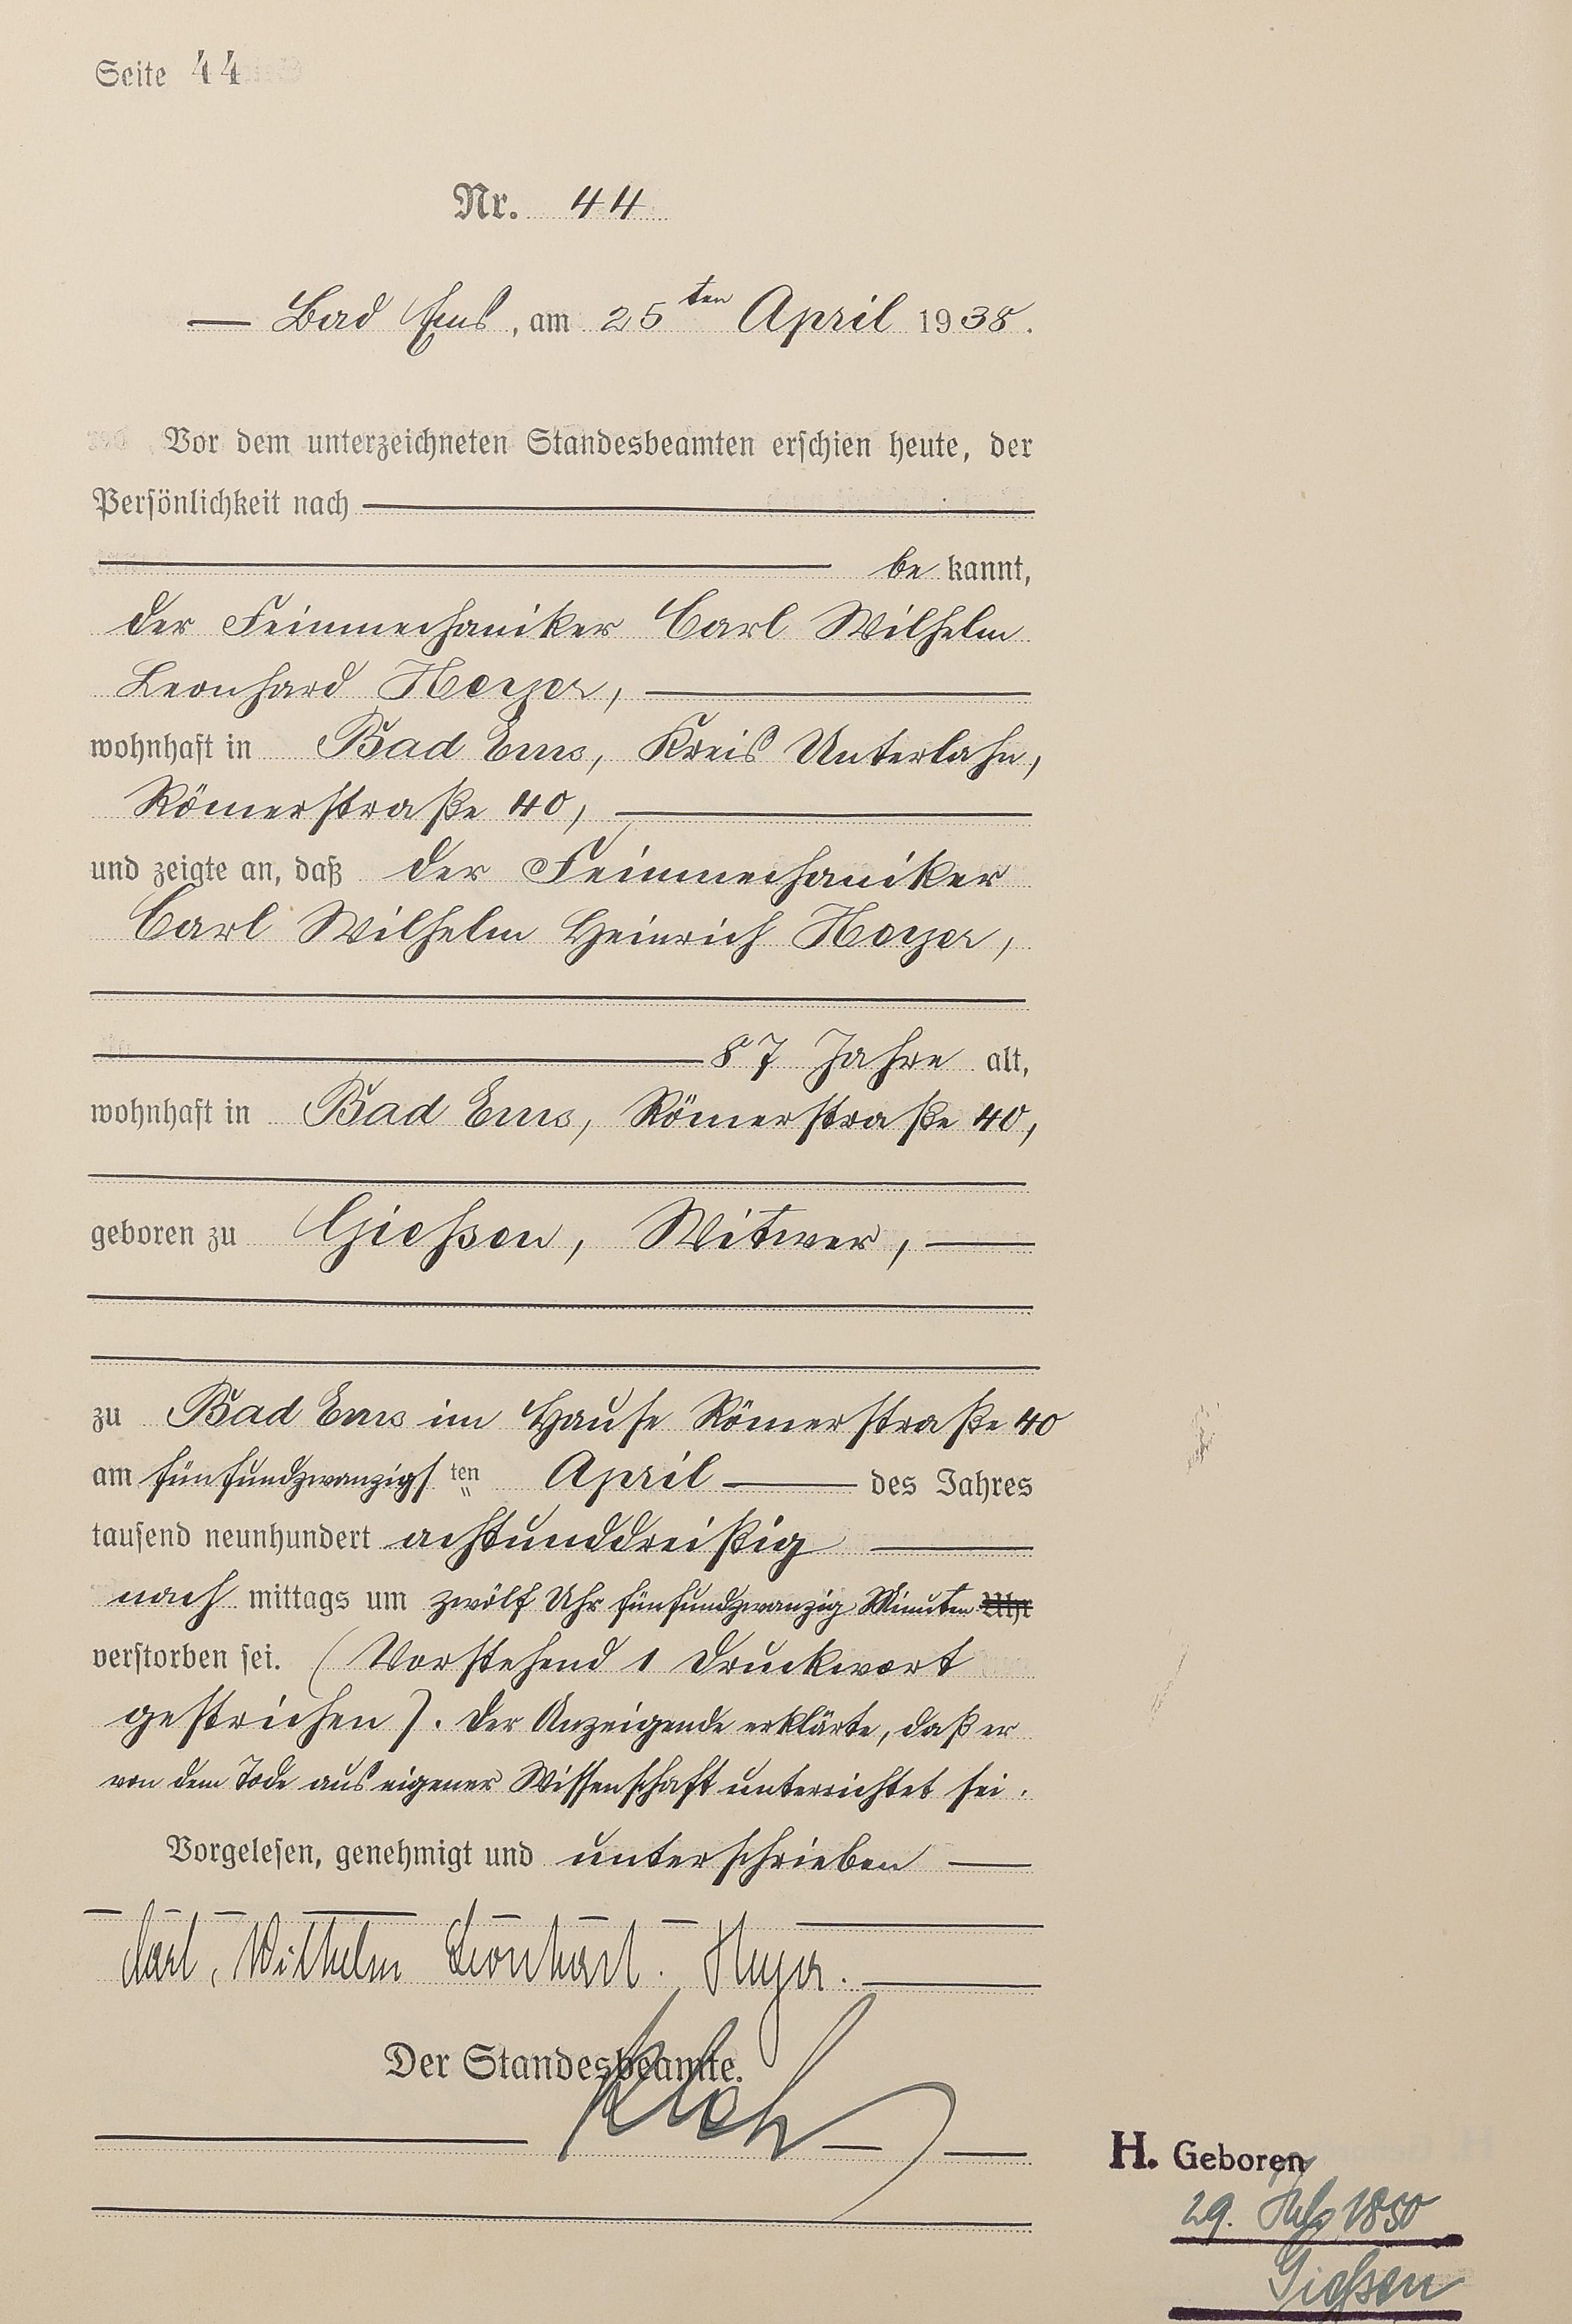 Seite 44
Nr. 44
Bad Ems, am 25ten April 1938.
Vor dem unterzeichneten Standesbeamten erschien heute, der
Persönlichkeit nach
be kannt,
der Feinmechaniker Carl Wilhelm
Leonhard Heyer,
wohnhaft in Bad Ems, Kreis Unterlahn,
Römerstraße 40,
und zeigte an, daß der Feinmechaniker
Carl Wilhelm Heinrich Heyer,
87 Jahre alt,
wohnhaft in Bad Ems, Römerstraße 40,
geboren zu Gießen, Witwer,
zu Bad Ems im Hause Römerstraße 40
am fünfundzwanzigsten April des Jahres
tausend neunhundert achtunddreißig
nach mittags um zwölf Uhr fünfundzwanzig Minuten Uhr
verstorben sei. (Vorstehend 1 Druckwort
gestrichen). Der Anzeigende erklärte, daß er
von dem Tode aus eigener Wissenschaft unterrichtet sei.
Vorgelesen, genehmigt und unterschrieben
Carl, Wilhelm Leonhard. Heyer.
Der Standesbeamte.
H. Geboren
29. 1850
Gießen